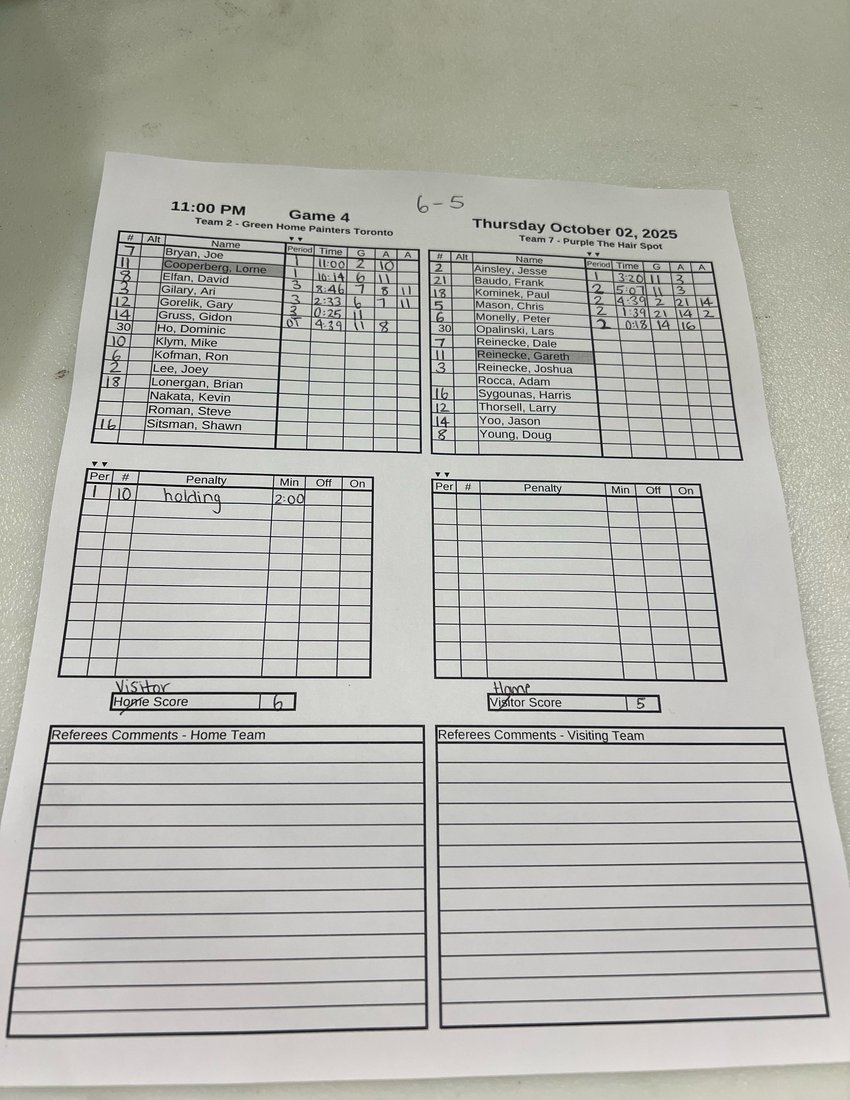 6-5
11:00 PM Game 4 Thursday October 02, 2025
Team 2 - Green Home Painters Toronto
Team 7 - Purple The Hair Spot
# Alt Name Period Time G A A
7 Bryan, Joe 1 11:00 2 10
11 Cooperberg, Lorne 1 10:14 6 11
8 Elfan, David 3 8:46 7 8 11
3 Gilary, Ari 3 2:33 6 7 11
12 Gorelik, Gary 3 0:25 11
14 Gruss, Gidon OT 4:39 11 8
30 Ho, Dominic
10 Klym, Mike
6 Kofman, Ron
2 Lee, Joey
18 Lonergan, Brian
Nakata, Kevin
Roman, Steve
16 Sitsman, Shawn
# Alt Name Period Time G A A
2 Ainsley, Jesse 1 3:20 11 3
21 Baudo, Frank 2 5:07 11 3
18 Kominek, Paul 2 4:39 2 21 14
5 Mason, Chris 2 1:39 21 14 2
6 Monelly, Peter 2 0:18 14 16
30 Opalinski, Lars
7 Reinecke, Dale
11 Reinecke, Gareth
3 Reinecke, Joshua
Rocca, Adam
16 Sygounas, Harris
12 Thorsell, Larry
14 Yoo, Jason
8 Young, Doug
Per # Penalty Min Off On
1 10 holding 2:00
Per # Penalty Min Off On
Visitor
Home Score 6
Home
Visitor Score 5
Referees Comments - Home Team
Referees Comments - Visiting Team